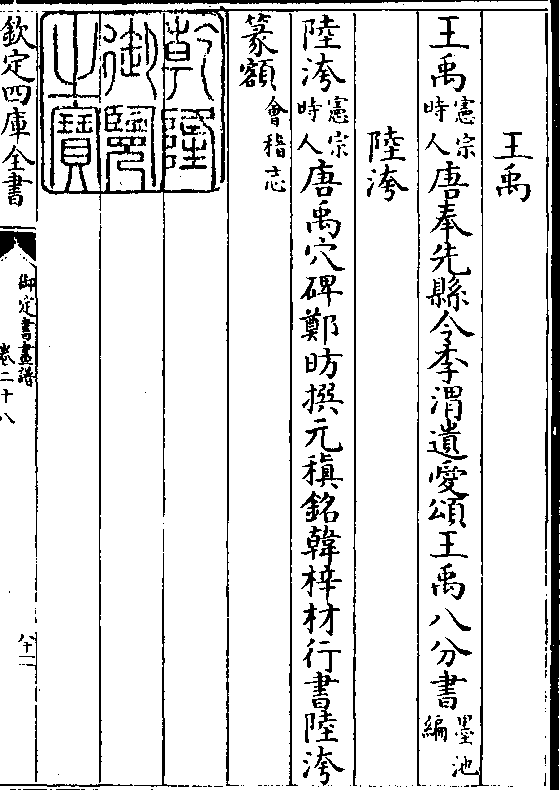 王禹
王禹憲宗時人唐奉先縣令李渭遺愛頌王禹八分書墨池編
陸洿
陸洿憲宗時人唐禹穴碑鄭昉撰元稹銘韓梓材行書陸洿
篆額會稽志
乾隆御覽之寶
欽定四庫全書
御定書畫譜
卷二十八